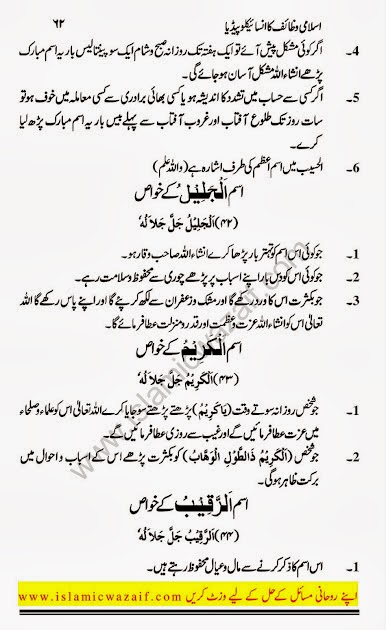 اسلامی وظائف کا انسائیکلوپیڈیا ۶۲
4۔ اگر کوئی مشکل پیش آئے تو ایک ہفتہ تک روزانہ صبح و شام ایک سو پینتالیس بار یہ اسم مبارک
پڑھے انشاء اللہ مشکل آسان ہو جائے گی۔
5۔ اگر کسی سے حساب میں تشدد کا اندیشہ ہو یا کسی بھائی برادری سے کسی معاملہ میں خوف ہو تو
سات روز تک طلوع آفتاب اور غروب آفتاب سے پہلے بیس بار یہ اسم مبارک پڑھ لیا
کرے۔
6۔ الحسیب میں اسم اعظم کی طرف اشارہ ہے (واللہ علم)
اسم اَلْجَلِیْلُ کے خواص
(۴۲) اَلْجَلِیْلُ جَلَّ جَلَا لُہٗ
1۔ جو کوئی اس اسم کو تہتر بار پڑھا کرے انشاء اللہ صاحب وقار ہو۔
2۔ جو کوئی اس کو دس بار اپنے اسباب پر پڑھے چوری سے محفوظ و سلامت رہے۔
3۔ جو بکثرت اس کا ورد رکھے گا اور مشک و زعفران سے لکھ کر پئے گا اور اپنے پاس رکھے گا اللہ
تعالیٰ اس کو انشاء اللہ عزت و عظمت اور قدر و منزلت عطا فرمائے گا۔
اسم اَلْکَرِیْمُ کے خواص
(۴۳) اَلْکَرِیْمُ جَلَّ جَلَا لُہٗ
1۔ جو شخص روزانہ سوتے وقت (یَا کَرِیْمُ) پڑھتے پڑھتے سو جایا کرے اللہ تعالیٰ اس کو علماء و صلحاء
میں عزت عطا فرمائیں گے اور غیب سے روزی عطا فرمائیں گے۔
2۔ جو شخص (اَلْکَرِیْمُ ذَالطَّوْلِ الْوَھَّابُ) کو بکثرت پڑھے اس کے اسباب و احوال میں
برکت ظاہر ہوگی۔
اسم اَلرَّقِیْبُ کے خواص
(۴۴) اَلرَّقِیْبُ جَلَّ جَلَا لُہٗ
1۔ اس اسم کا ذکر کرنے سے مال و عیال محفوظ رہتے ہیں۔
اپنے روحانی مسائل کے حل کے لیے وزٹ کریں www.islamicwazaif.com
www.islamicwazaif.com